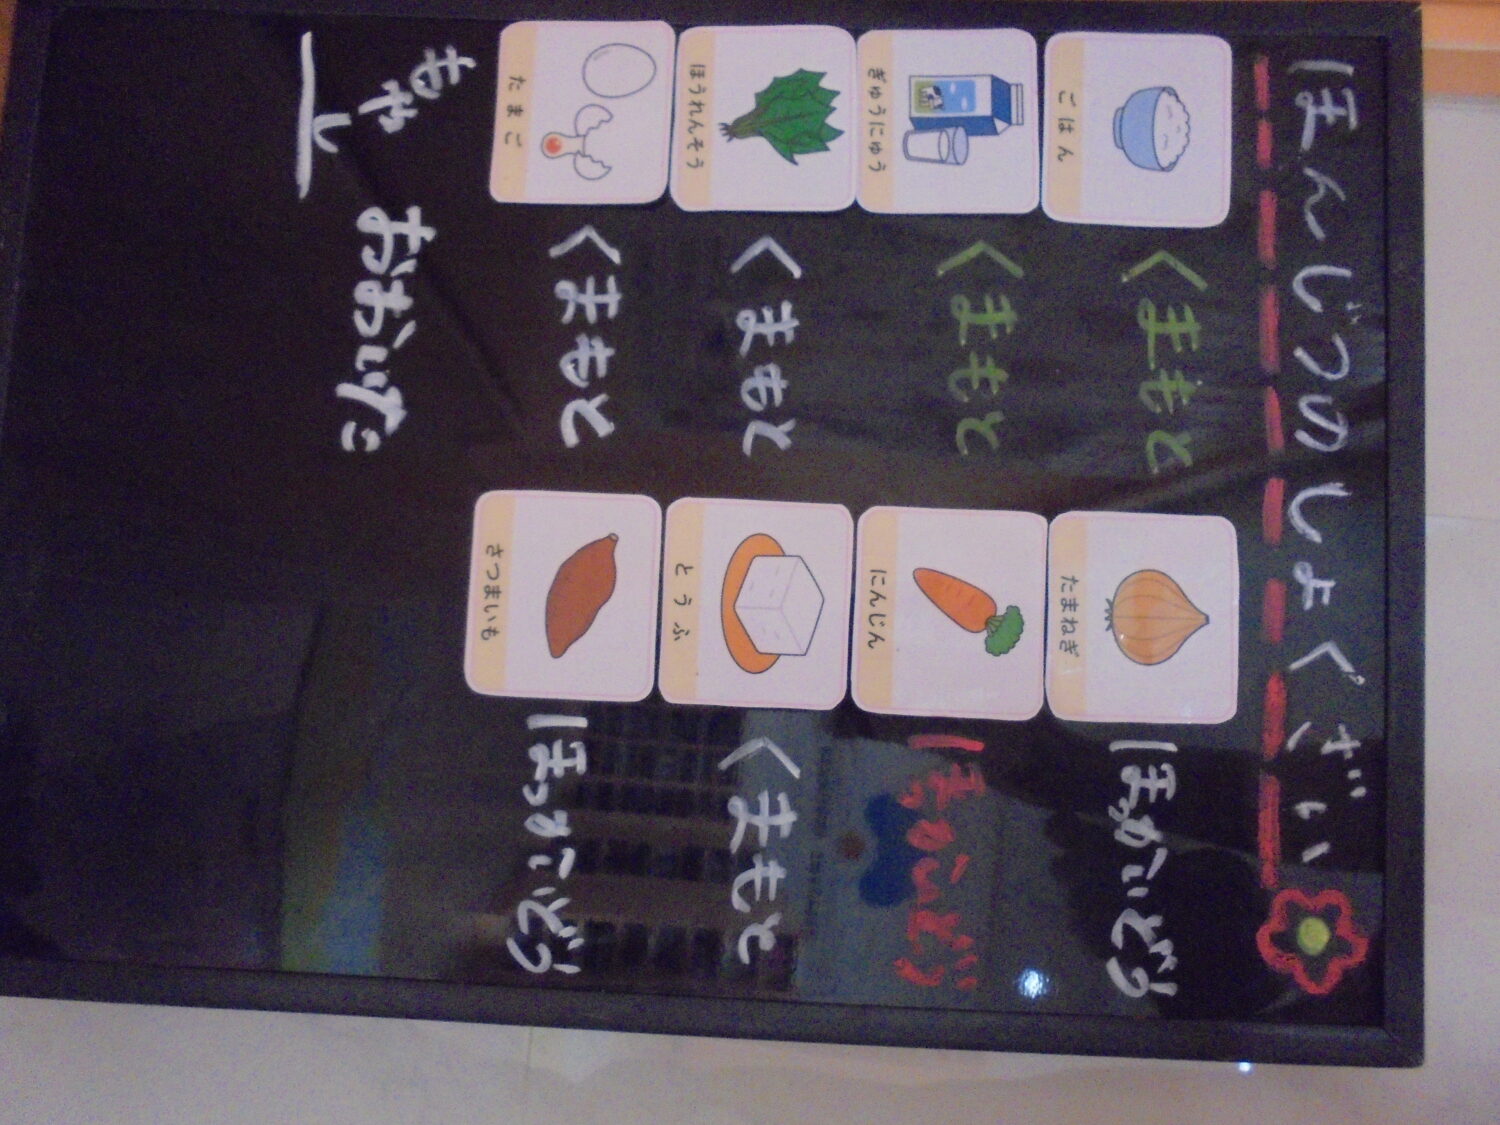 ほんじつのしょくざい
ごはん くまもと たまねぎ ほっかいどう
ぎゅうにゅう くまもと にんじん ほっかいどう
ほうれんそう くまもと とうふ くまもと
たまご くまもと さつまいも ほっかいどう
もやし おおいた